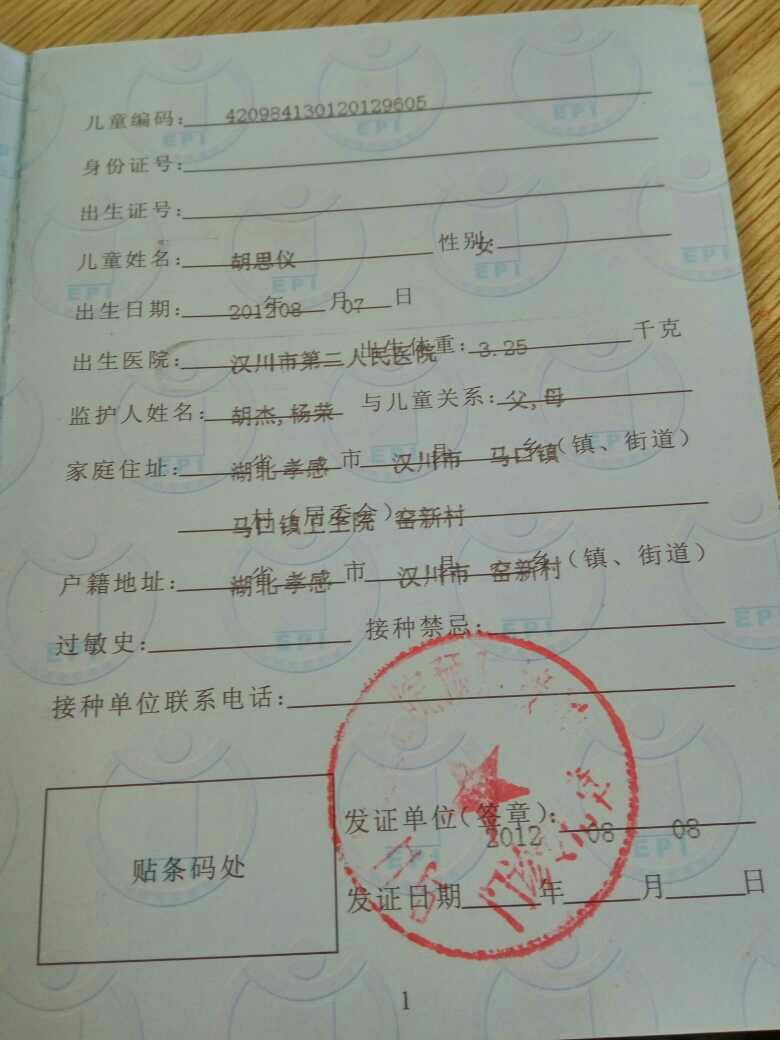 儿童编码: 420984130120129605
身份证号:
出生证号:
儿童姓名: 胡思仪 性别: 女
出生日期: 2012年08月07日
出生医院: 汉川市第二人民医院 出生体重: 3.25 千克
监护人姓名: 胡杰,杨荣 与儿童关系: 父,母
家庭住址: 湖北省孝感市 汉川市县 马口镇乡(镇、街道)
马口镇卫生院 窑新村 村(居委会)
户籍地址: 湖北省孝感市 汉川市县 窑新村乡(镇、街道)
过敏史: 接种禁忌:
接种单位联系电话:
贴条码处
发证单位(签章):
发证日期 2012年08月08日
1
EPI